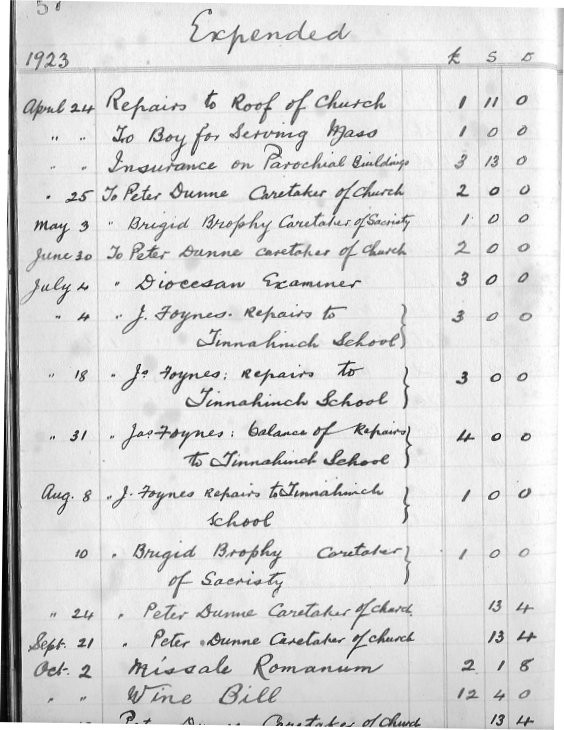 Expended
1923 £ s D
April 24 Repairs to Roof of Church 1 11 0
" " To Boy for Serving Mass 1 0 0
" " Insurance on Parochial Buildings 3 13 0
" 25 To Peter Dunne Caretaker of Church 2 0 0
May 3 " Brigid Brophy Caretaker of Sacristy 1 0 0
June 30 To Peter Dunne caretaker of Church 2 0 0
July 4 " Diocesan Examiner 3 0 0
" 4 " J. Foynes. Repairs to
Tinnahinch School } 3 0 0
" 18 " Js Foynes: Repairs to
Tinnahinch School } 3 0 0
" 31 " Jas Foynes: balance of Repairs
to Tinnahinch School } 4 0 0
Aug. 8 " J. Foynes Repairs to Tinnahinch
School } 1 0 0
10 " Brigid Brophy Caretaker
of Sacristy } 1 0 0
" 24 " Peter Dunne Caretaker of Church 13 4
Sept. 21 " Peter Dunne Caretaker of Church 13 4
Oct. 2 Missale Romanum 2 1 8
" " Wine Bill 12 4 0
Peter Dunne Caretaker of Church 13 4